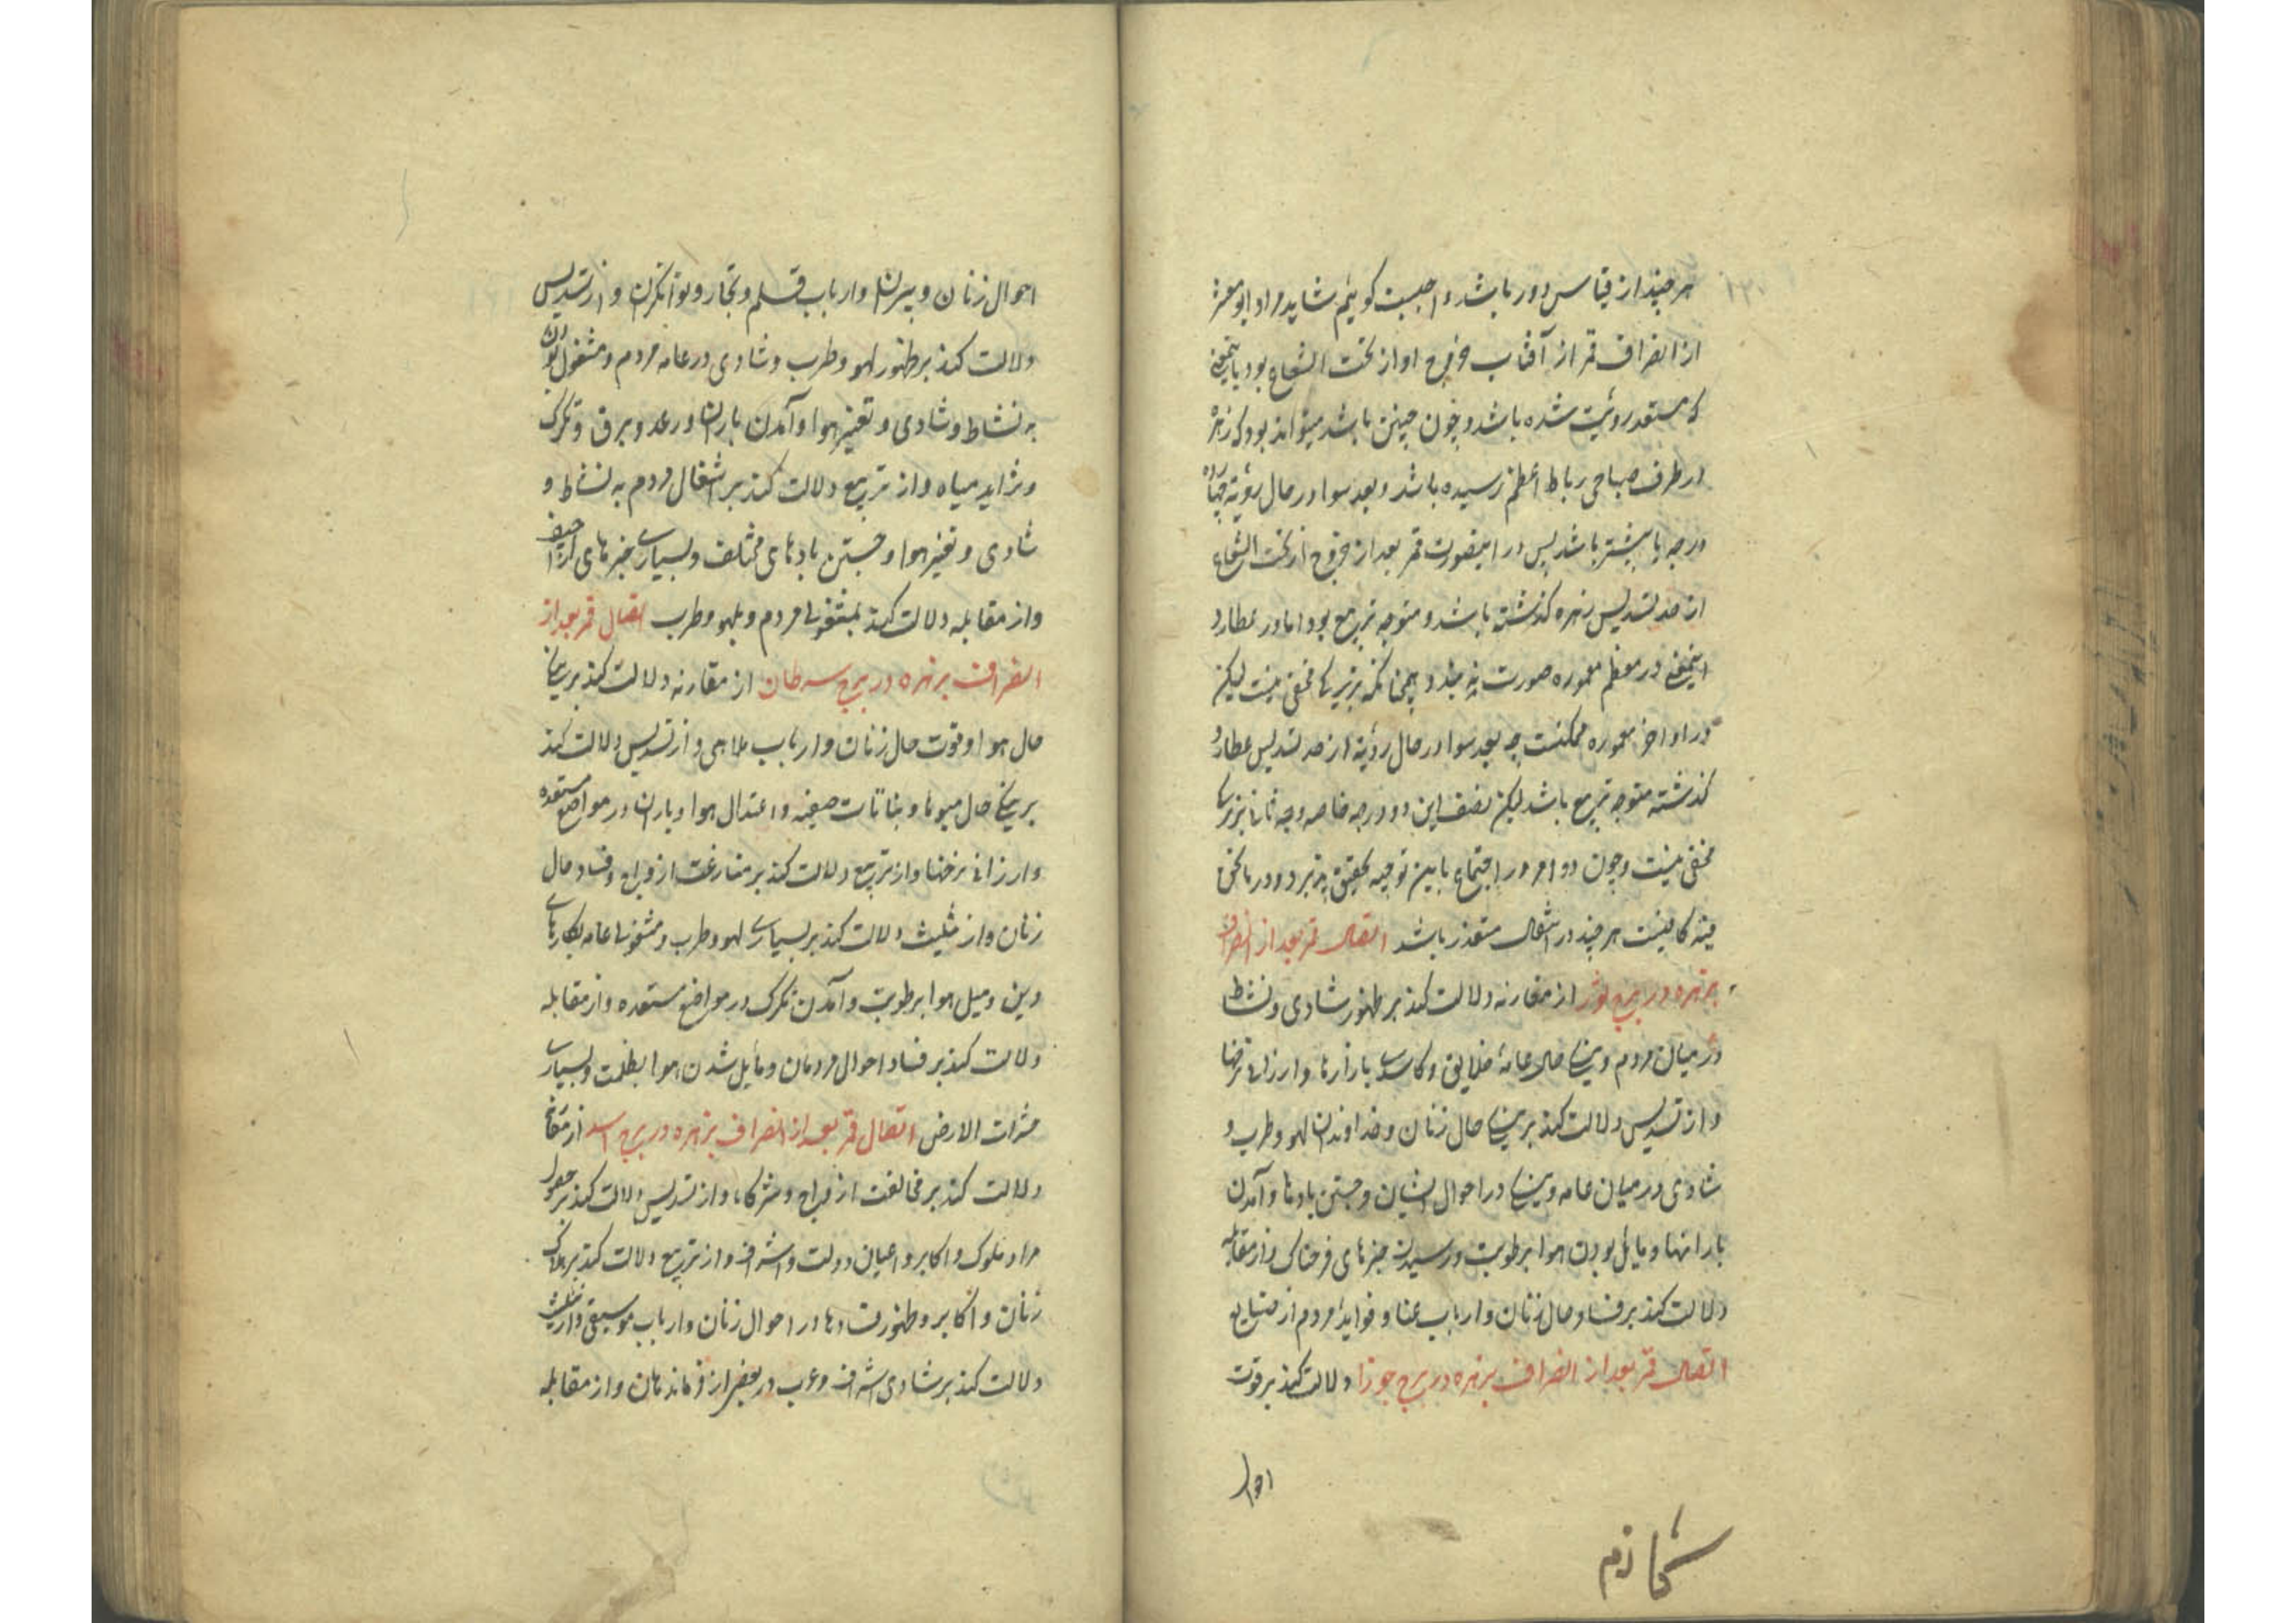 هر چند از قیاس دور باشد و اجیبت کوییم شاید مراد ابو معشر
از انصراف قمر از آفتاب خروج او از تحت الشعاع بود یا بمعنی
که مستعد رویت شده باشد و چون چنین باشد میتواند بود که زهره
از طرف صباحی رباط اعظم رسیده باشد و بعد سوا در حال رؤیة
درجه یا بیشتر باشد پس در اینصورت قمر بعد از خروج از تحت الشعاع
از حد تسدیس زهره کذشته باشد و متوجه تربیع بود اما در عطارد
اینمعنی در معظم معموره صورت نه بندد و همچنانکه بر زیرکا مخفی نیست لیکن
در اواخر معموره ممکنست چه بعد سوا در حال رؤیة از حد تسدیس عطارد
کذشته متوجه تربیع باشد لیکن نصف این دو درجه خاصه وجه ثانی بر زیرکا
مخفی نیست و چون دو امر در اجتماع باین توجیه تحقیق پذیرد و در ما نحن
فیه کافیست هر چند در اتصال متعذر باشد اتصال قمر بعد از انصراف
بزهره در برج ثور از مقارنه دلالت کند بر ظهور شادی و نشاط
در میان مردم و نیکی حال عامهٔ خلایق و کاسدی بازارها و ارزانی نرخها
و از تسدیس دلالت کند بر نیکی حال زنان و خداوندان لهو و طرب و
شادی در میان عامه و نیکی در احوال ایشان و جستن بادها و آمدن
بارانها و مایل بودن هوا برطوبت و رسیدن خبرهای فرحناک و از مقابله
دلالت کند بر فساد حال زنان و ارباب غنا و فواید مردم از صنایع
اتصال قمر بعد از انصراف بزهره در برج جوزا دلالت کند بر قوت
احوال
احوال زنان و پیران و ارباب قلم و تجار و توانکران و از تسدیس
دلالت کند بر ظهور لهو و طرب و شادی در عامه مردم و مشغول بودن
به نشاط و شادی و تغیر هوا و آمدن باران و رعد و برق و تکرک
و تزاید میاه و از تربیع دلالت کند بر اشغال مردم به نشاط و
شادی و تغیر هوا و جستن بادهای مختلف و بسیاری خبرهای اراجیف
و از مقابله دلالت کند بمشغولی مردم و بلهو و طرب اتصال قمر بعد از
انصراف بزهره در برج سرطان از مقارنه دلالت کند بر نیکی
حال هوا و قوت حال زنان و ارباب ملاهی و از تسدیس دلالت کند
بر نیکی حال میوها و نباتات صیفیه و اعتدال هوا و باران در مواضع مستعده
و ارزانی نرخها و از تربیع دلالت کند بر مفارغت ازواج و فساد حال
زنان و از تثلیث دلالت کند بر بسیاری لهو و طرب و مشغولی عامه بکارهای
دین و میل هوا برطوبت و آمدن تکرک در مواضع مستعده و از مقابله
دلالت کند بر فساد احوال مردمان و مایل شدن هوا بظلمت و بسیاری
حشرات الارض اتصال قمر بعد از انصراف بزهره در برج اسد از مقارنه
دلالت کند بر مخالفت ازواج و شرکاء و از تسدیس دلالت کند بر حصول
مراد ملوک و اکابر و اعیان دولت و اشراف و از تربیع دلالت کند بر هلاک
زنان و اکابر و ظهور فسادها در احوال زنان و ارباب موسیقی و از تثلیث
دلالت کند بر شادی اشراف و عرب در بعضی از فرماندهان و از مقابله